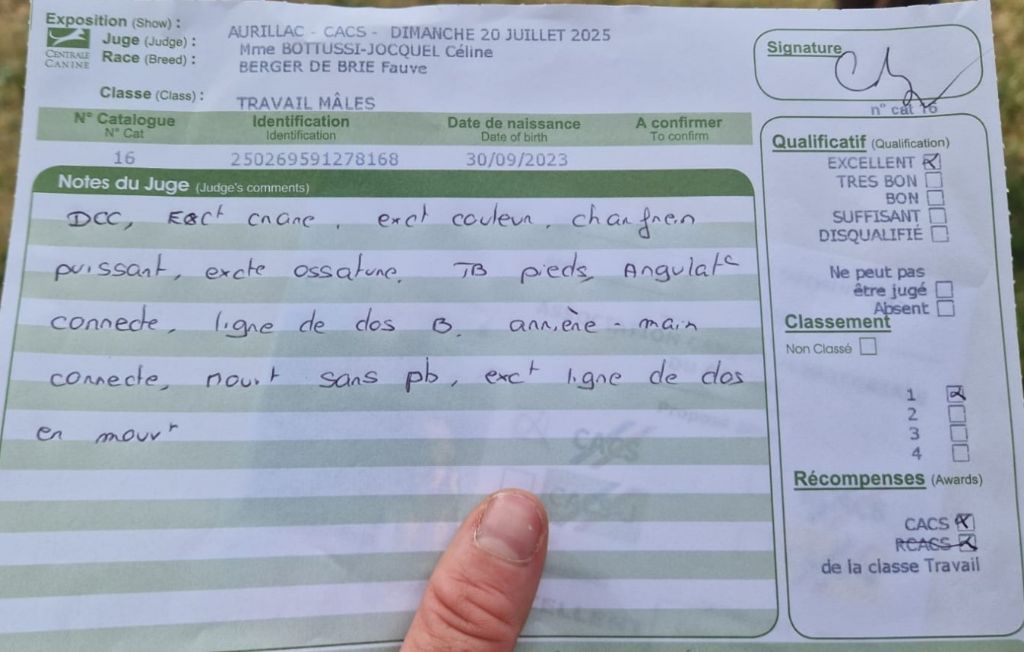 Exposition (Show) :
AURILLAC - CACS - DIMANCHE 20 JUILLET 2025
CENTRALE CANINE
Juge (Judge) : Mme BOTTUSSI-JOCQUEL Céline
Race (Breed) : BERGER DE BRIE Fauve
Classe (Class) : TRAVAIL MÂLES
Signature
n° cat 16
N° Catalogue Identification Date de naissance A confirmer
N° Cat Identification Date of birth To confirm
16 250269591278168 30/09/2023
Notes du Juge (Judge's comments)
DCC, Exct crâne, exct couleur, chanfrein
puissant, excte ossature, TB pieds, Angulat°
correcte, ligne de dos B. arrière-main
correcte, nourt sans pb, exct ligne de dos
en mouvt
Qualificatif (Qualification)
EXCELLENT
TRES BON
BON
SUFFISANT
DISQUALIFIÉ
Ne peut pas
être jugé
Absent
Classement
Non Classé
1
2
3
4
Récompenses (Awards)
CACS
RCACS
de la classe Travail